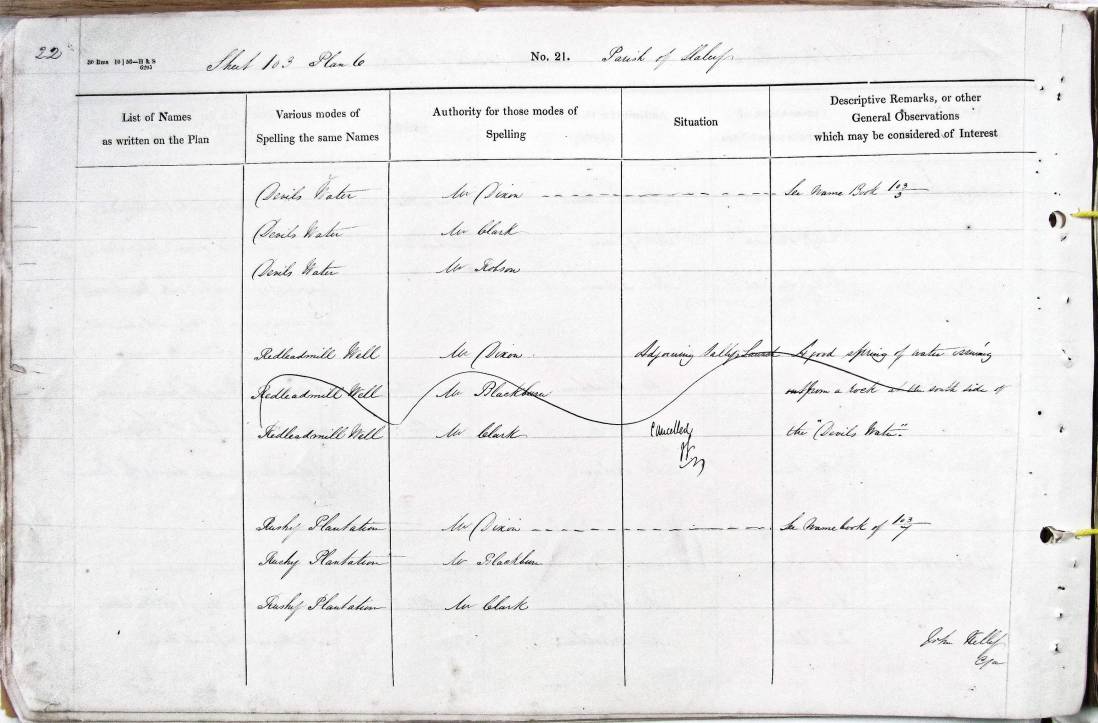 22
Sheet 103 Plan 6 No. 21. Parish of Slaley
List of Names
as written on the Plan
Various modes of
Spelling the same Names
Authority for those modes of
Spelling
Situation
Descriptive Remarks, or other
General Observations
which may be considered of Interest
Devils Water Mr Dixon See Name Book 103/3
Devils Water Mr Clark
Devils Water Mr Robson
Redleadmill Well Mr Dixon Adjoining A good spring of water issuing
Redleadmill Well Mr Blackburn out from a rock at the south side of
Redleadmill Well Mr Clark Cancelled the "Devils Water".
Rushy Plantation Mr Dixon See Name book of 103/7
Rushy Plantation Mr Blackburn
Rushy Plantation Mr Clark
John Kelly